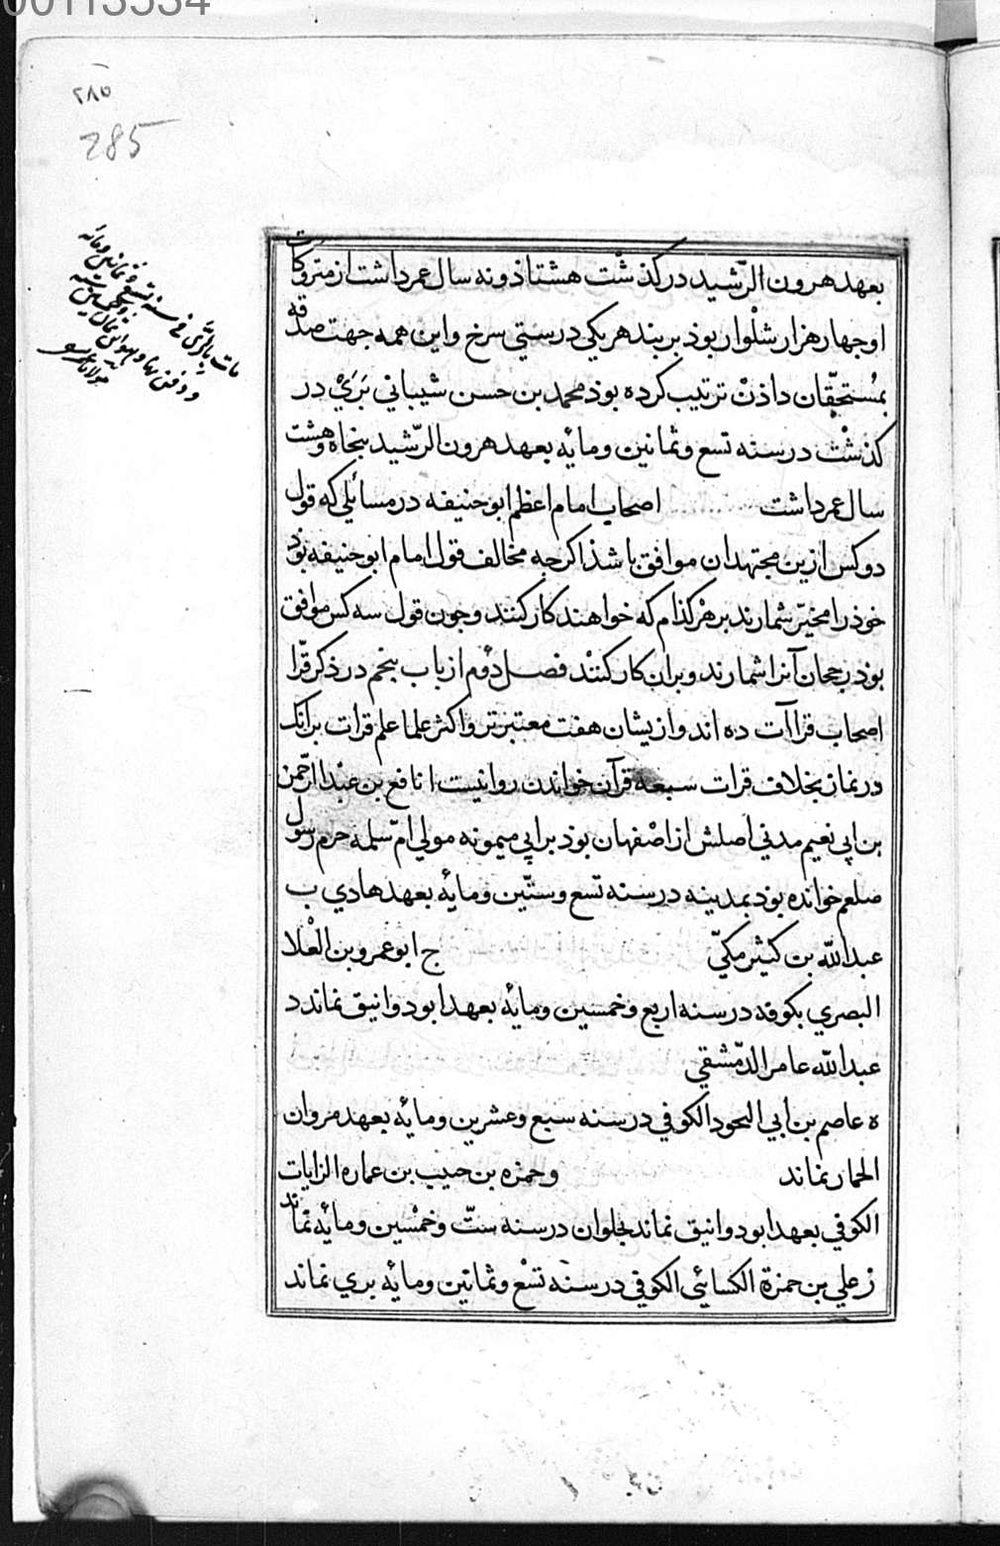 00113534
٢٨٥
285
بعهد هرون الرّشید درکذشْت هشتاذ و نه سال عمر داشت از متروکات
او جهار هزار شلْوار بوذ بر بند هر یکی درستي سرخ و این همه جهت صدقه
بمُستحقّان داذنْ ترتیب کرده بوذ محمد بن حسن شیباني بَرَيْ در
کذشْت در سنه تسع و ثمانین و مایٔه بعهد هرون الرّشید بنجاه و هشت
سال عمر داشت اصحاب امام اعظم ابو حنیفه در مسائلي که قول
دو کس ازین مجتهدان موافق باشذ اکرجه مخالف قول امام ابو حنیفه بوذ
خوذ را مخیّر شمارند بر هرْکذام که خواهند کار کنند و جون قول سه کس موافق
بوذ رجحان آنرا شمارند و بران کار کننْد فصل دوّم از باب بنجم در ذکر قرّا
اصحاب قراآت ده اند و ازیشان هفت معتبرتر و اکثر علما علم قرات برانک
در نماز بخلاف قرات سبعه قرآن خواندن روا نیست ا نافع بن عبْد الرّحمن
بن ابي نعیم مدني اصلش از اصْفهان بوذ بر ابي میمونه مولي امّ سلمه حرم رسول
صلعم خوانده بوذ بمدینه در سنه تسع و ستّین و مایٔه بعهد هادي ب
عبد اللّه بن کثیْر مکيّ ج ابو عمرو بن الْعلا
البصري بکوفه در سنه اربع و خمسین و مایٔه بعهد ابو دوانیق نماند د
عبد اللّه عامر الدّمشقي
ه عاصم بن ابي النجود الکوفي در سنه سبع و عشرین و مایٔه بعهد مروان
الحمار نماند و حمزه بن حبیب بن عماره الزایات
الکوفي بعهد ابو دوانیق نماند بحلوان در سنه ستّ و خمْسین و مایٔه نماند
ز علي بن حمزة الکسایٔي الکوفي در سنه تسْع و ثمانین و مایٔه بري نماند